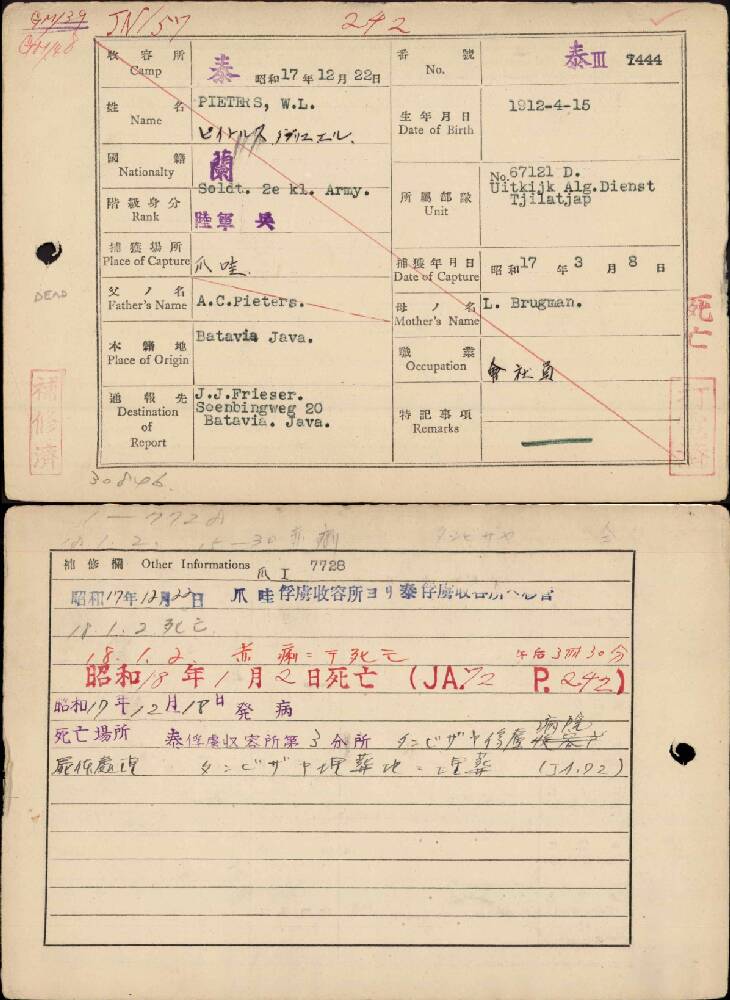 GM139
GM/48
JN/57
242
收容所 Camp 泰 昭和17年12月22日
番號 No. 泰III 7444
姓名 Name PIETERS, W.L.
生年月日 Date of Birth 1912-4-15
國籍 Nationalty 蘭
階級身分 Rank Soldt. 2e kl. Army.
陸軍
所屬部隊 Unit No.67121 D.
Uitkijk Alg.Dienst
Tjilatjap
捕獲場所 Place of Capture 爪哇.
捕獲年月日 Date of Capture 昭和17年3月8日
父ノ名 Father's Name A.C.Pieters.
母ノ名 Mother's Name L. Brugman.
本籍地 Place of Origin Batavia Java.
職業 Occupation 會社員
通報先 Destination of Report J.J.Frieser.
Soenbingweg 20
Batavia. Java.
特記事項 Remarks
DEAD
死亡
補修濟
30846.
1-7728
18.1.2. 15-30 赤痢
補修欄 Other Informations 爪I 7728
昭和17年12月22日 爪哇俘虜收容所ヨリ泰俘虜收容所ヘ
18.1.2 死亡
18.1.2. 赤痢ニテ死亡 午后3時30分
昭和18年1月2日死亡 (JA.72 P.242)
昭和17年12月18日発病
死亡場所 泰俘虜収容所第3分所 タンビザヤ俘虜病院
屍体處理 タンビザヤ埋葬地ニ埋葬 (JA.72)